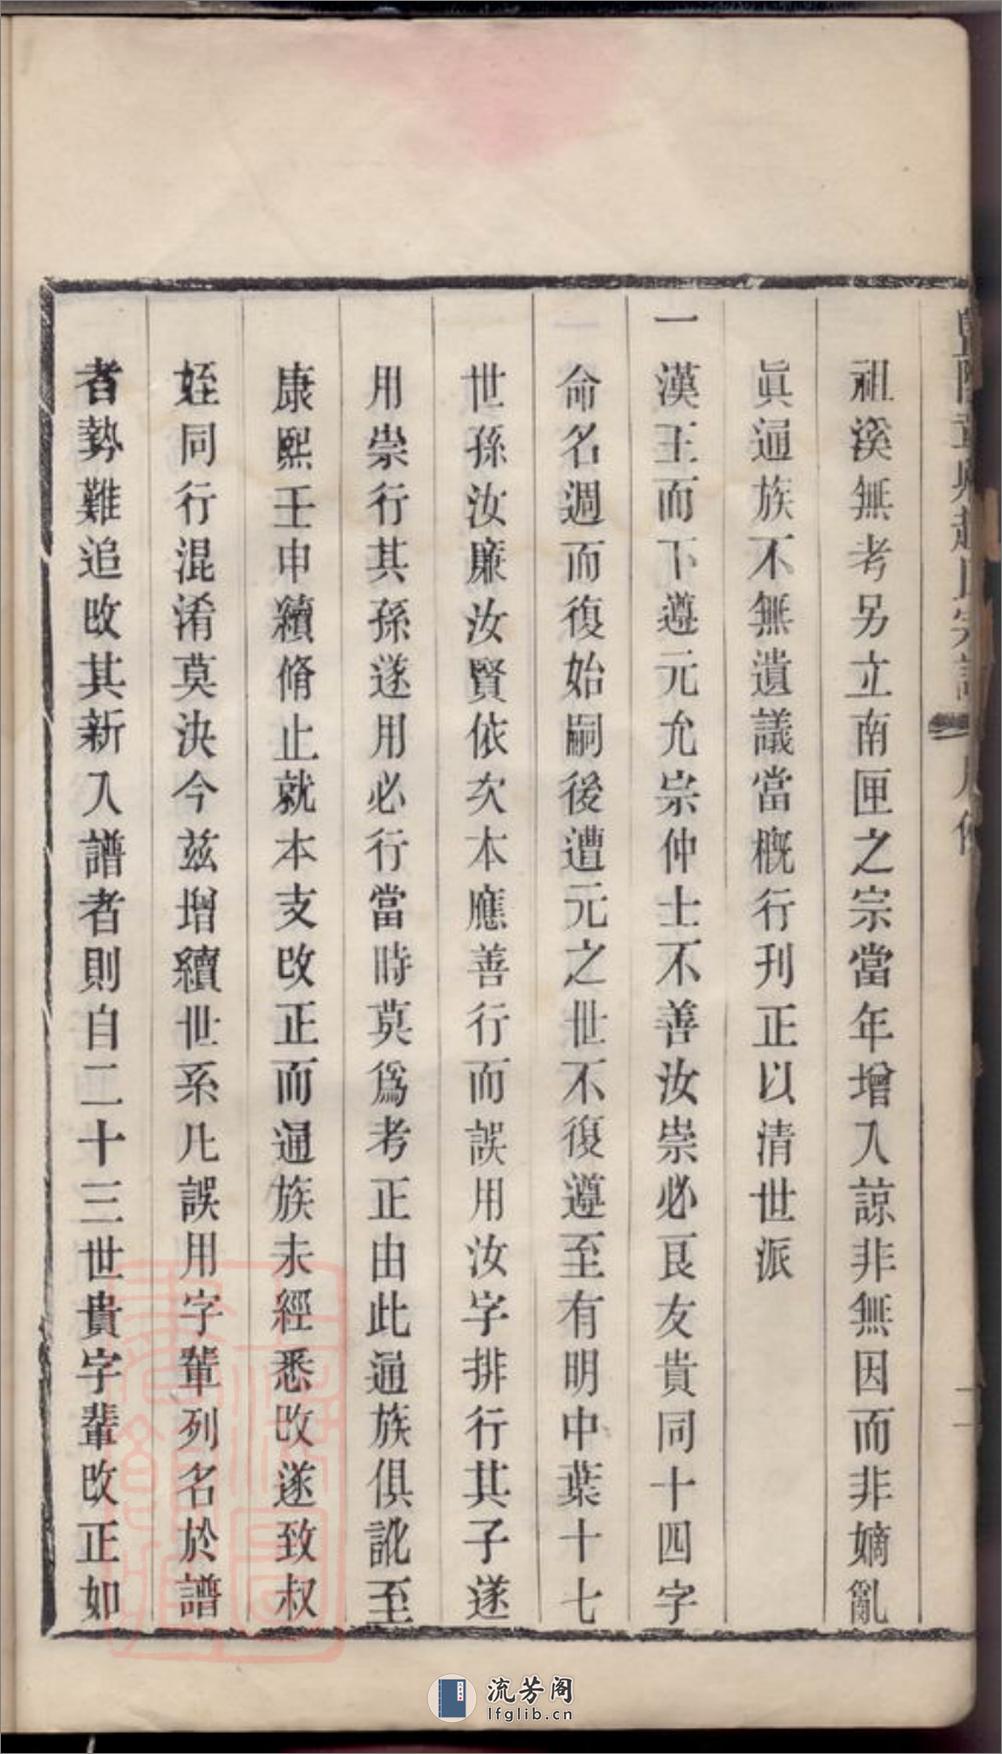 祖溪無考另立南匣之宗當年增入諒非無因而非嫡亂
眞通族不無遺議當槪行刋正以清世派
一漢王而下遵元允宗仲士不善汝崇必良友貴同十四字
命名週而復始嗣後遭元之世不復遵至有明中葉十七
世孫汝廉汝賢依次本應善行而誤用汝字排行其子遂
用崇行其孫遂用必行當時莫爲考正由此通族俱訛至
康熙壬申續脩止就本支改正而通族未經悉改遂致叔
姪同行混淆莫決今茲增續世系凡誤用字輩列名於譜
者勢難追改其新入譜者則自二十三世貴字輩改正如
流芳阁
lfglib.cn